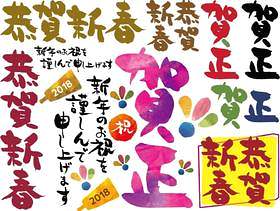 恭賀新春
新春
恭賀
賀正
賀正
新年のお祝を
謹んで申し上げます
恭賀新春
2018
賀正
祝
新年のお祝を
謹んで
申し上げます
賀正
賀正
2018
恭賀
新春